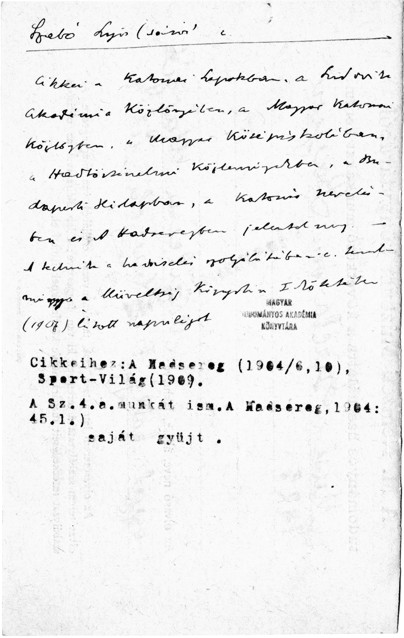 Szabó Lajos
Cikkei a Katonai Lapokban, a Ludovika
Akadémia Közlönyében, a Magyar Katonai
Közlönyben, a Magyar Középiskolában,
a Hadtörténelmi Közleményekben, a Bu-
dapesti Hirlapban, a Katonai Nevelés-
ben és A Hadseregben jelentek meg. —
A technika a hadviselés szolgálatában c. tanul-
mánya a Műveltség Könyvtára
(1907) látott napvilágot
MAGYAR
TUDOMÁNYOS AKADÉMIA
KÖNYVTÁRA
Cikkeihez:A Hadsereg (1904/6,10),
Sport-Világ(1909.
A Sz.4.a.munkát ism.A Hadsereg,1904:
45.l.)
saját gyüjt .